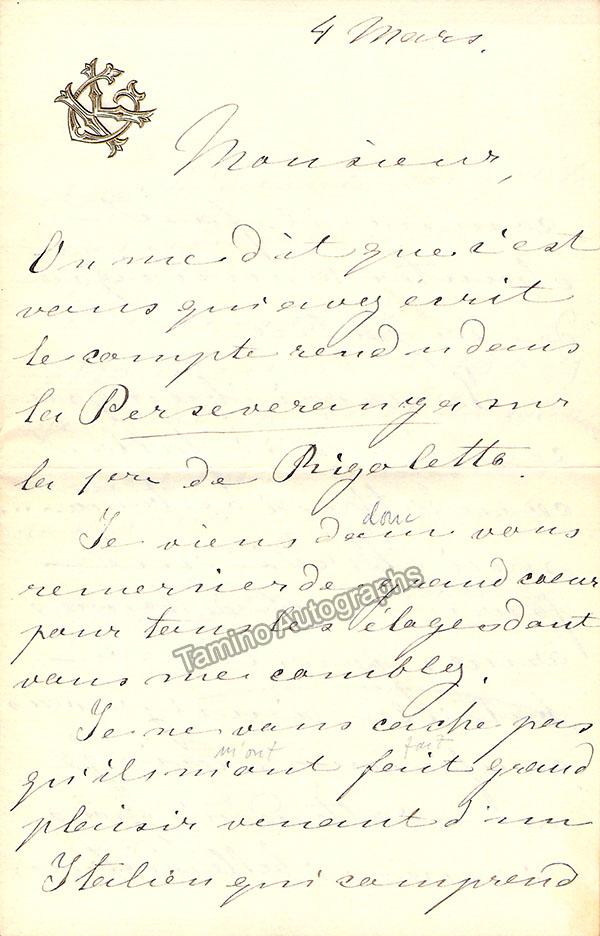 4 Mars.
Monsieur,
On me dit que c'est
vous qui avez écrit
le compte rendu dans
la Perseveranza sur
la 1ère de Rigoletto.
donc
Je viens donc vous
remercier de grand coeur
pour tous les élogesdont
vous me comblez.
Je ne vous cache pas
m'ont fait
qu'ils m'ont fait grand
plaisir venant d'un
Italien qui comprend
Tamino Autographs